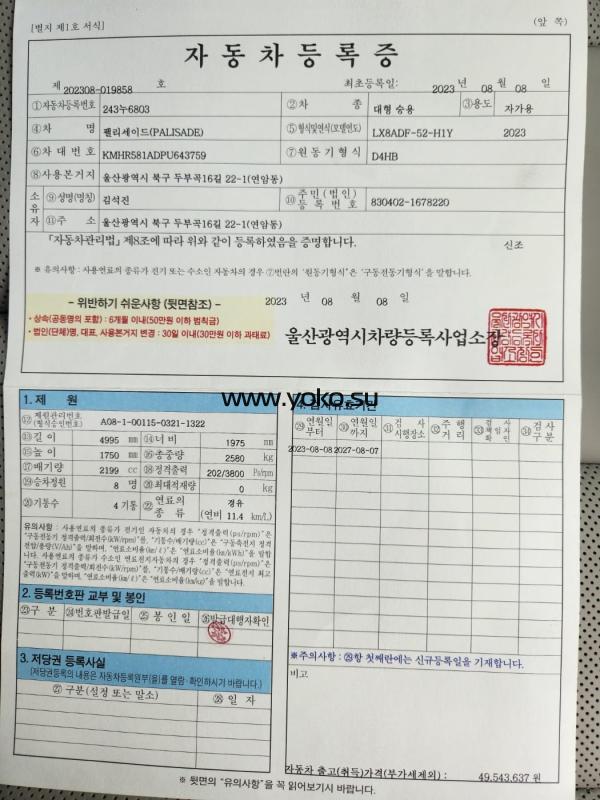 [별지 제1호 서식]
(앞 쪽)
자동차등록증
제 202308-019858 호
최초등록일: 2023 년 08 월 08 일
①자동차등록번호 243누6803 ②차 종 대형 승용 ③용도 자가용
④차 명 팰리세이드(PALISADE) ⑤형식및연식(모델연도) LX8ADF-52-H1Y 2023
⑥차 대 번 호 KMHR581ADPU643759 ⑦원 동 기 형 식 D4HB
⑧사용본거지 울산광역시 북구 두부곡16길 22-1(연암동)
소유자 ⑨성명(명칭) 김석진 ⑩주민(법인)등록번호 830402-1678220
⑪주 소 울산광역시 북구 두부곡16길 22-1(연암동)
「자동차관리법」제8조에 따라 위와 같이 등록하였음을 증명합니다.
신조
※ 유의사항 : 사용연료의 종류가 전기 또는 수소인 자동차의 경우 ⑦번란의 '원동기형식'은 '구동전동기형식'을 말합니다.
2023 년 08 월 08 일
- 위반하기 쉬운사항 (뒷면참조) -
• 상속(공동명의 포함) : 6개월 이내(50만원 이하 범칙금)
• 법인(단체)명, 대표, 사용본거지 변경 : 30일 이내(30만원 이하 과태료)
울산광역시차량등록사업소장
www.yoko.su
1. 제 원
⑫제원관리번호(형식승인번호) A08-1-00115-0321-1322
⑬길 이 4995 mm ⑭너 비 1975 mm
⑮높 이 1750 mm ⑯총중량 2580 kg
⑰배기량 2199 cc ⑱정격출력 202/3800 Ps/rpm
⑲승차정원 8 명 ⑳최대적재량 0 kg
㉑기통수 4 기통 ㉒연료의 종류 경유
(연비 11.4 km/L)
유의사항 : 사용연료의 종류가 전기인 자동차의 경우 "정격출력(ps/rpm)"은
"구동전동기 정격출력/회전수(kW/rpm)"를, "기통수/배기량(cc)"은 "구동축전지 정격
전압/용량(V/Ah)"을 말하며, "연료소비율(km/ℓ)"은 "연료소비율(km/kWh)"을 말합
니다. 사용연료의 종류가 수소인 연료전지자동차의 경우 "정격출력(ps/rpm)"은
"구동전동기 정격출력/회전수(kW/rpm)"를, "기통수/배기량(cc)"은 "연료전지 최고
출력(kW)"을 말하며, "연료소비율(km/ℓ)"은 "연료소비율(km/kg)"을 말합니다.
2. 등록번호판 교부 및 봉인
㉓구 분 ㉔번호판발급일 ㉕봉 인 일 ㉖발급대행자확인
3. 저당권 등록사실
(저당권등록의 내용은 자동차등록원부(을)를 열람·확인하시기 바랍니다.)
㉗구분(설정 또는 말소) ㉘일 자
4. 검사유효기간
㉙연월일부터 ㉚연월일까지 ㉛검 사 시행장소 ㉜주 행 거 리 ㉝검 사 책임자 확 인 ㉞검 사 구 분
2023-08-08 2027-08-07
※주의사항 : ㉙항 첫째란에는 신규등록일을 기재합니다.
비고
자동차 출고(취득)가격(부가세제외) : 49,543,637 원
※ 뒷면의 "유의사항"을 꼭 읽어보시기 바랍니다.